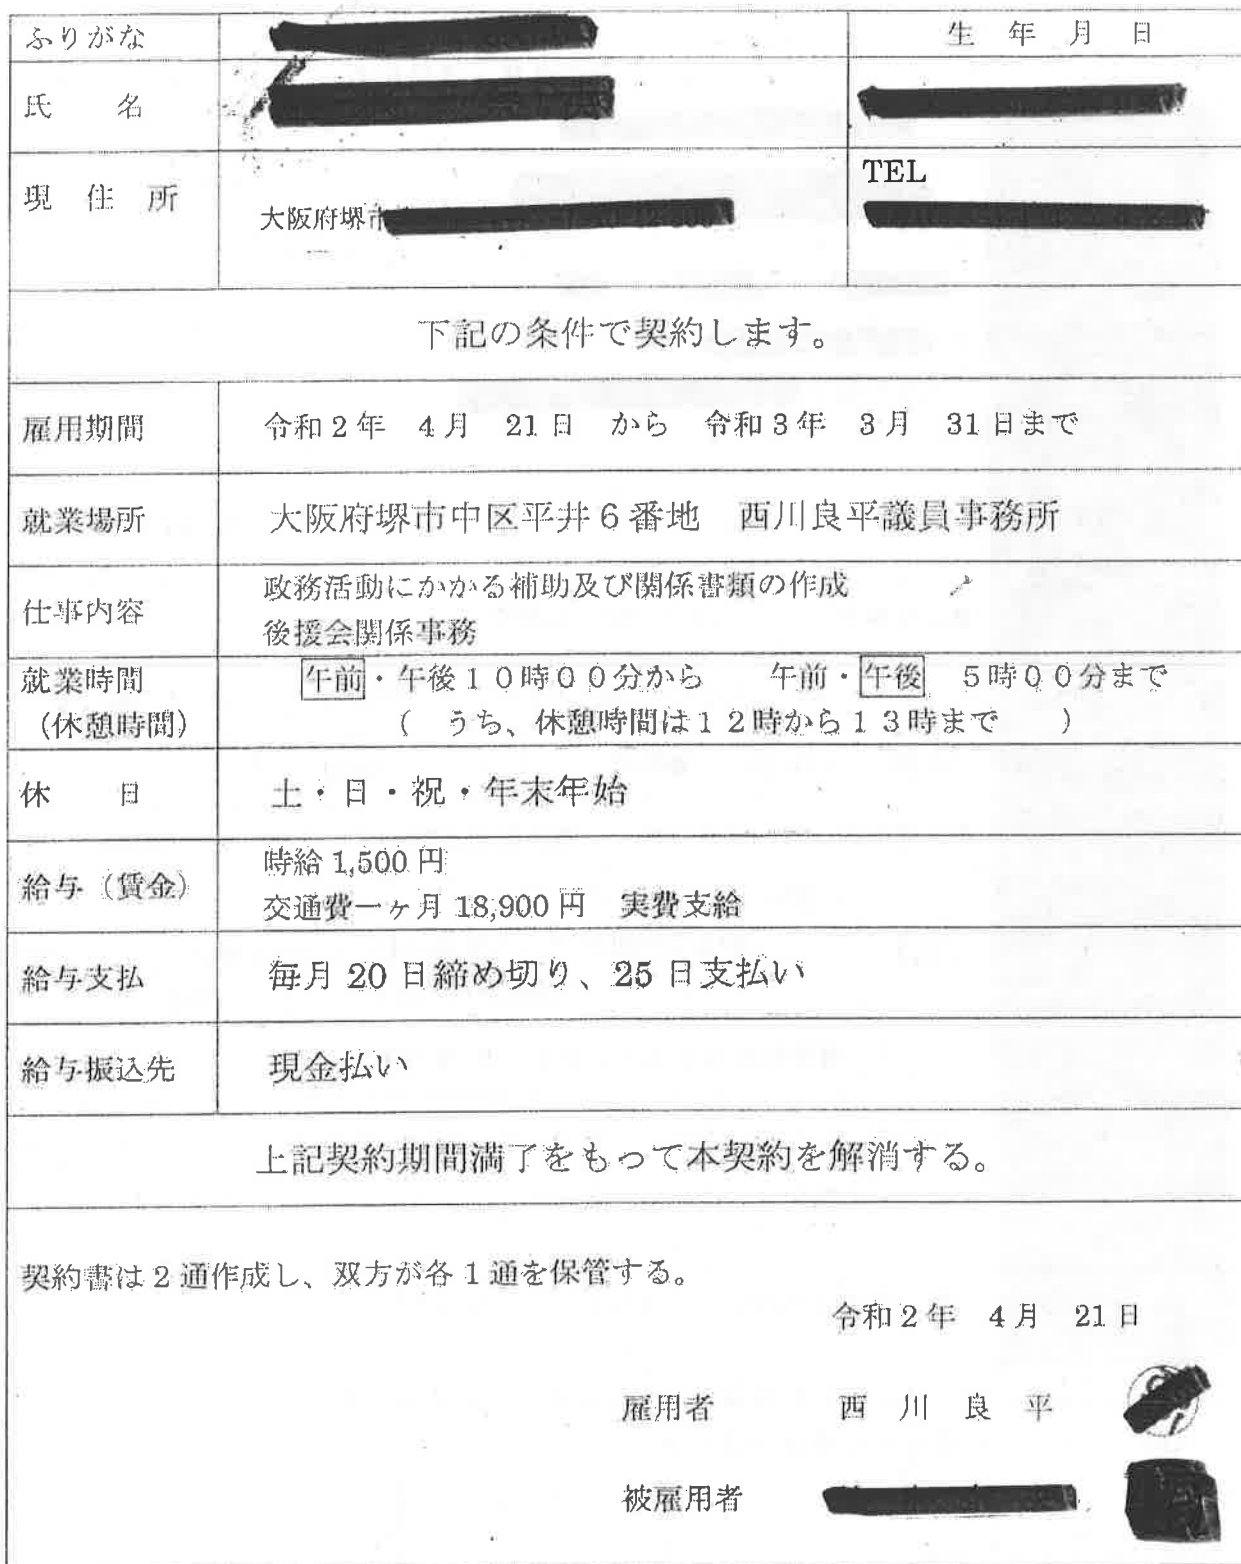 ふりがな
生年月日
氏名
現住所
大阪府堺市
TEL
下記の条件で契約します。
雇用期間 令和2年 4月 21日 から 令和3年 3月 31日まで
就業場所 大阪府堺市中区平井6番地 西川良平議員事務所
仕事内容
政務活動にかかる補助及び関係書類の作成
後援会関係事務
就業時間 午前・午後10時00分から 午前・午後 5時00分まで
(休憩時間) ( うち、休憩時間は12時から13時まで )
休日 土・日・祝・年末年始
給与(賃金)
時給 1,500 円
交通費一ヶ月 18,900 円 実費支給
給与支払 毎月 20 日締め切り、25 日支払い
給与振込先 現金払い
上記契約期間満了をもって本契約を解消する。
契約書は2通作成し、双方が各1通を保管する。
令和2年 4月 21日
雇用者 西川良平
被雇用者